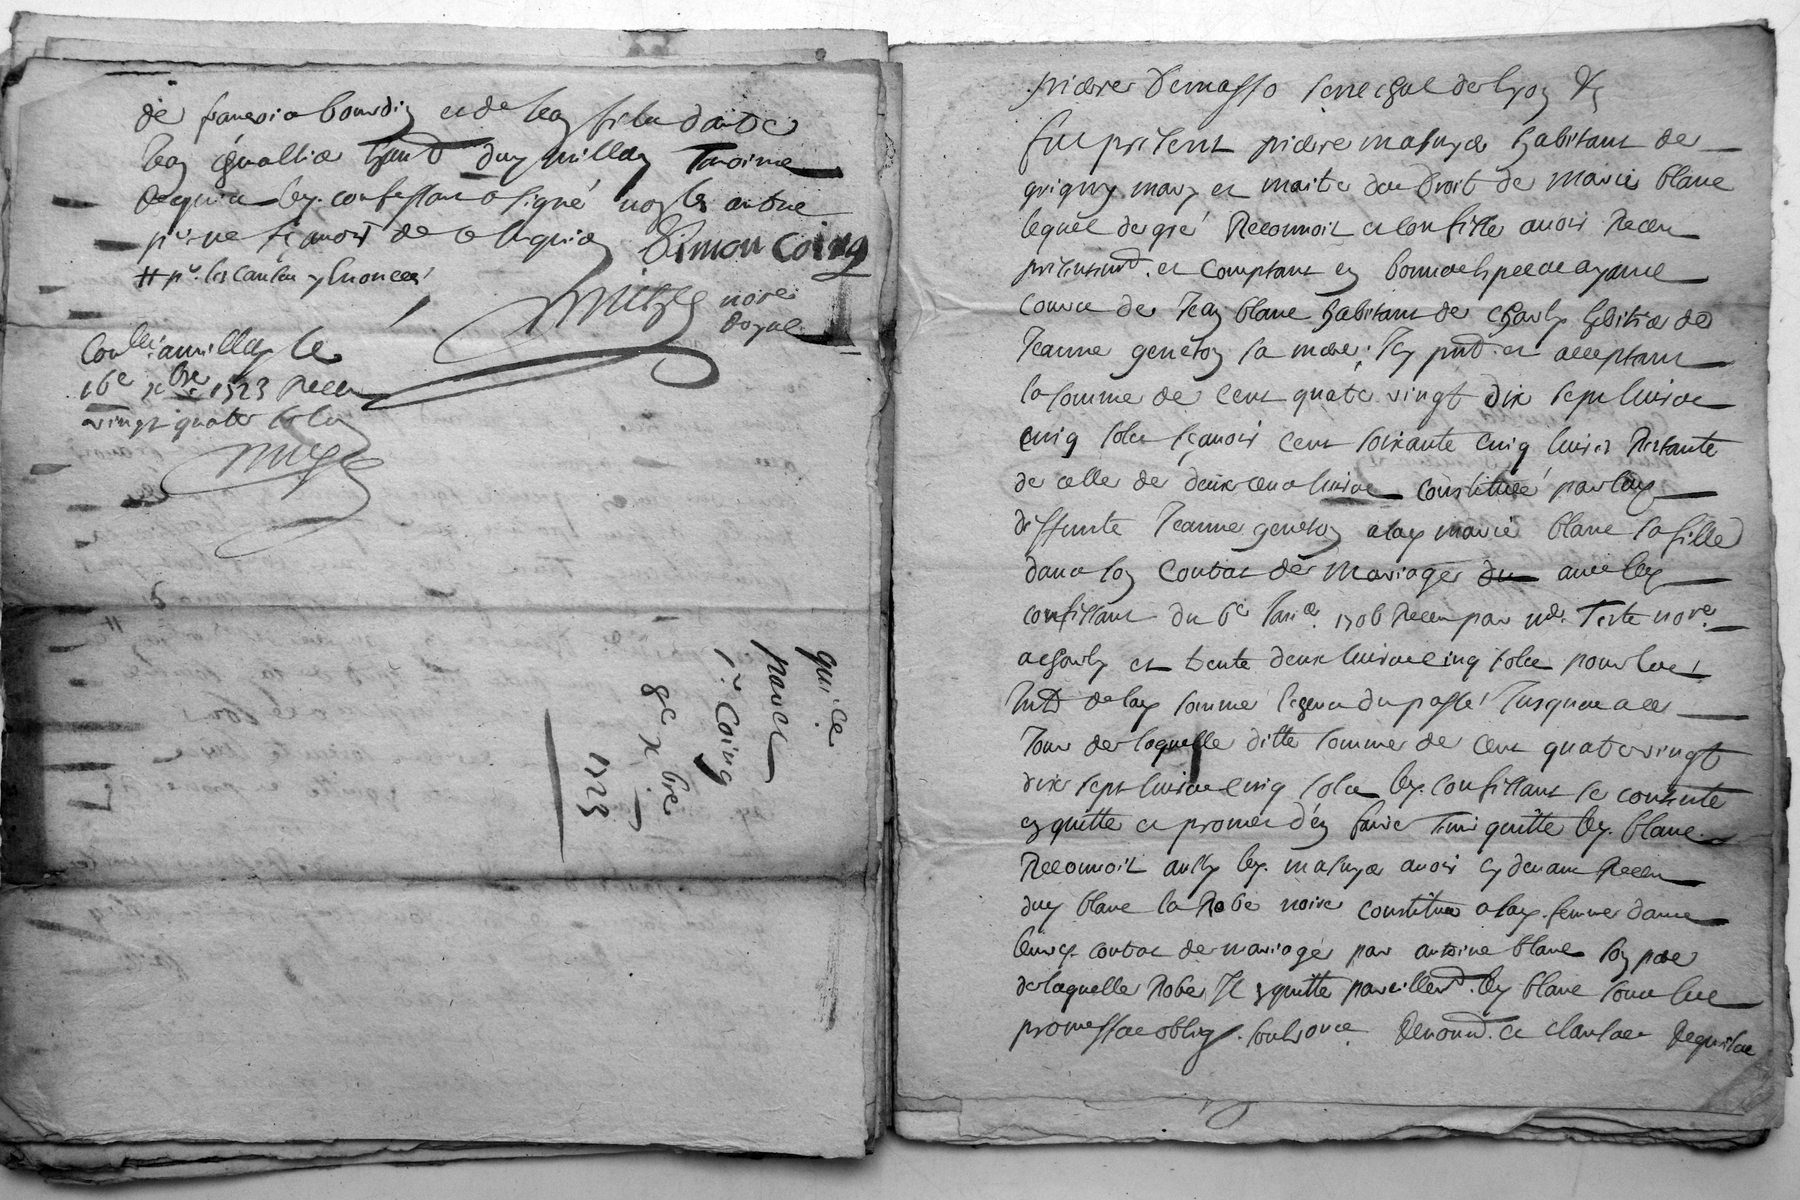 de françois bourdin et de leon filz dantoe
leon chevallier habt. dud. millery Temoins
Requis led. confessant a signé non les autres
pr. ne sçavoir de ce enquis Simon Coing
# pr. les causes y enoncées
nore.
Royal
Conllé. a millery le
16e xbre. 1723 Receu
vingt quatre sols
quice.
pour
Sr. Coing
8e xbre
1723
pierre Demasso seneschal de lyon &
fut present pierre habitant de
grigny mary et maitre des Droit de marie blanc
lequel de gré Reconnoit et confesse avoir Receu
presentemt. et comptant en bonne espece ayant
cours de Jean blanc habitant de charly heritier de
Jeanne geneton sa mere; Icy pnt. et acceptant
la somme de cent quatre vingt dix sept livres
cinq sols sçavoir cent soixante cinq livres Restante
de celle de deux cens livres constituée par lad.
deffunte Jeanne geneton a lad. marie blanc sa fille
dans son contrat de Mariage du avec led.
confessant du 6e Janer. 1706 Receu par me. Teste nore.
a charly et trente deux livres cinq sols pour les
Intt. de lad. somme legeu du passé Jusques a ce
Jour de laquelle ditte somme de cent quatre vingt
dix sept livres cinq sols led. confessant se contente
en quitte et promet d'en faire Tenir quitte led. blanc.
Reconnoit aussy led. avoir cy devant Receu
dud. blanc la Robe noire constituée a lad. femme dans
leurd. contrat de mariage par antoine blanc son pere
de laquelle Robe Il en quitte pareillemt. led. blanc sous les
promesses oblig. Renont. et clauses Requises